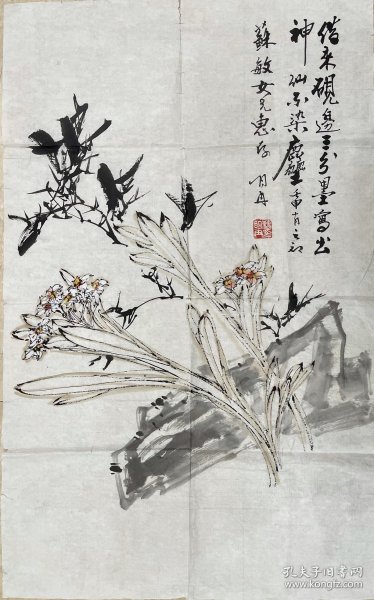 借来砚边三分墨写出
神仙不染尘壬申青之初
蘇敏女兄惠存 明丹
孔夫子旧书网
www.kongfz.com